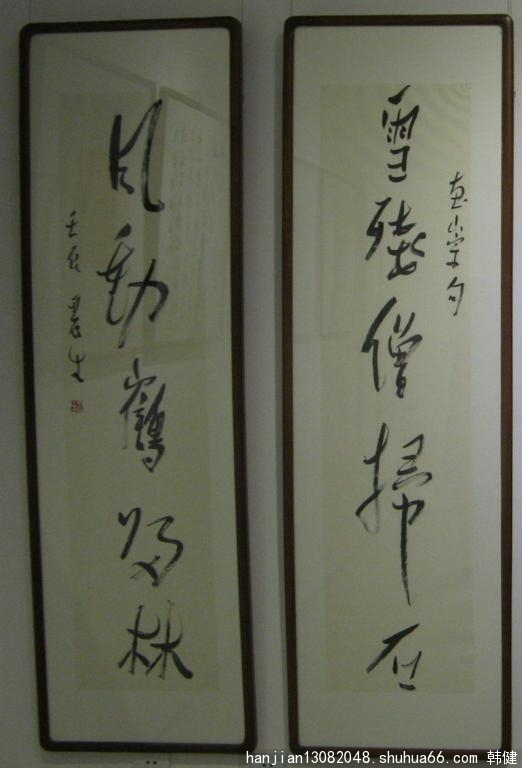 雪殘僧掃石
惠崇句
風動鶴歸林
壬辰
hanjian13082048.shuhua66.com 韩健